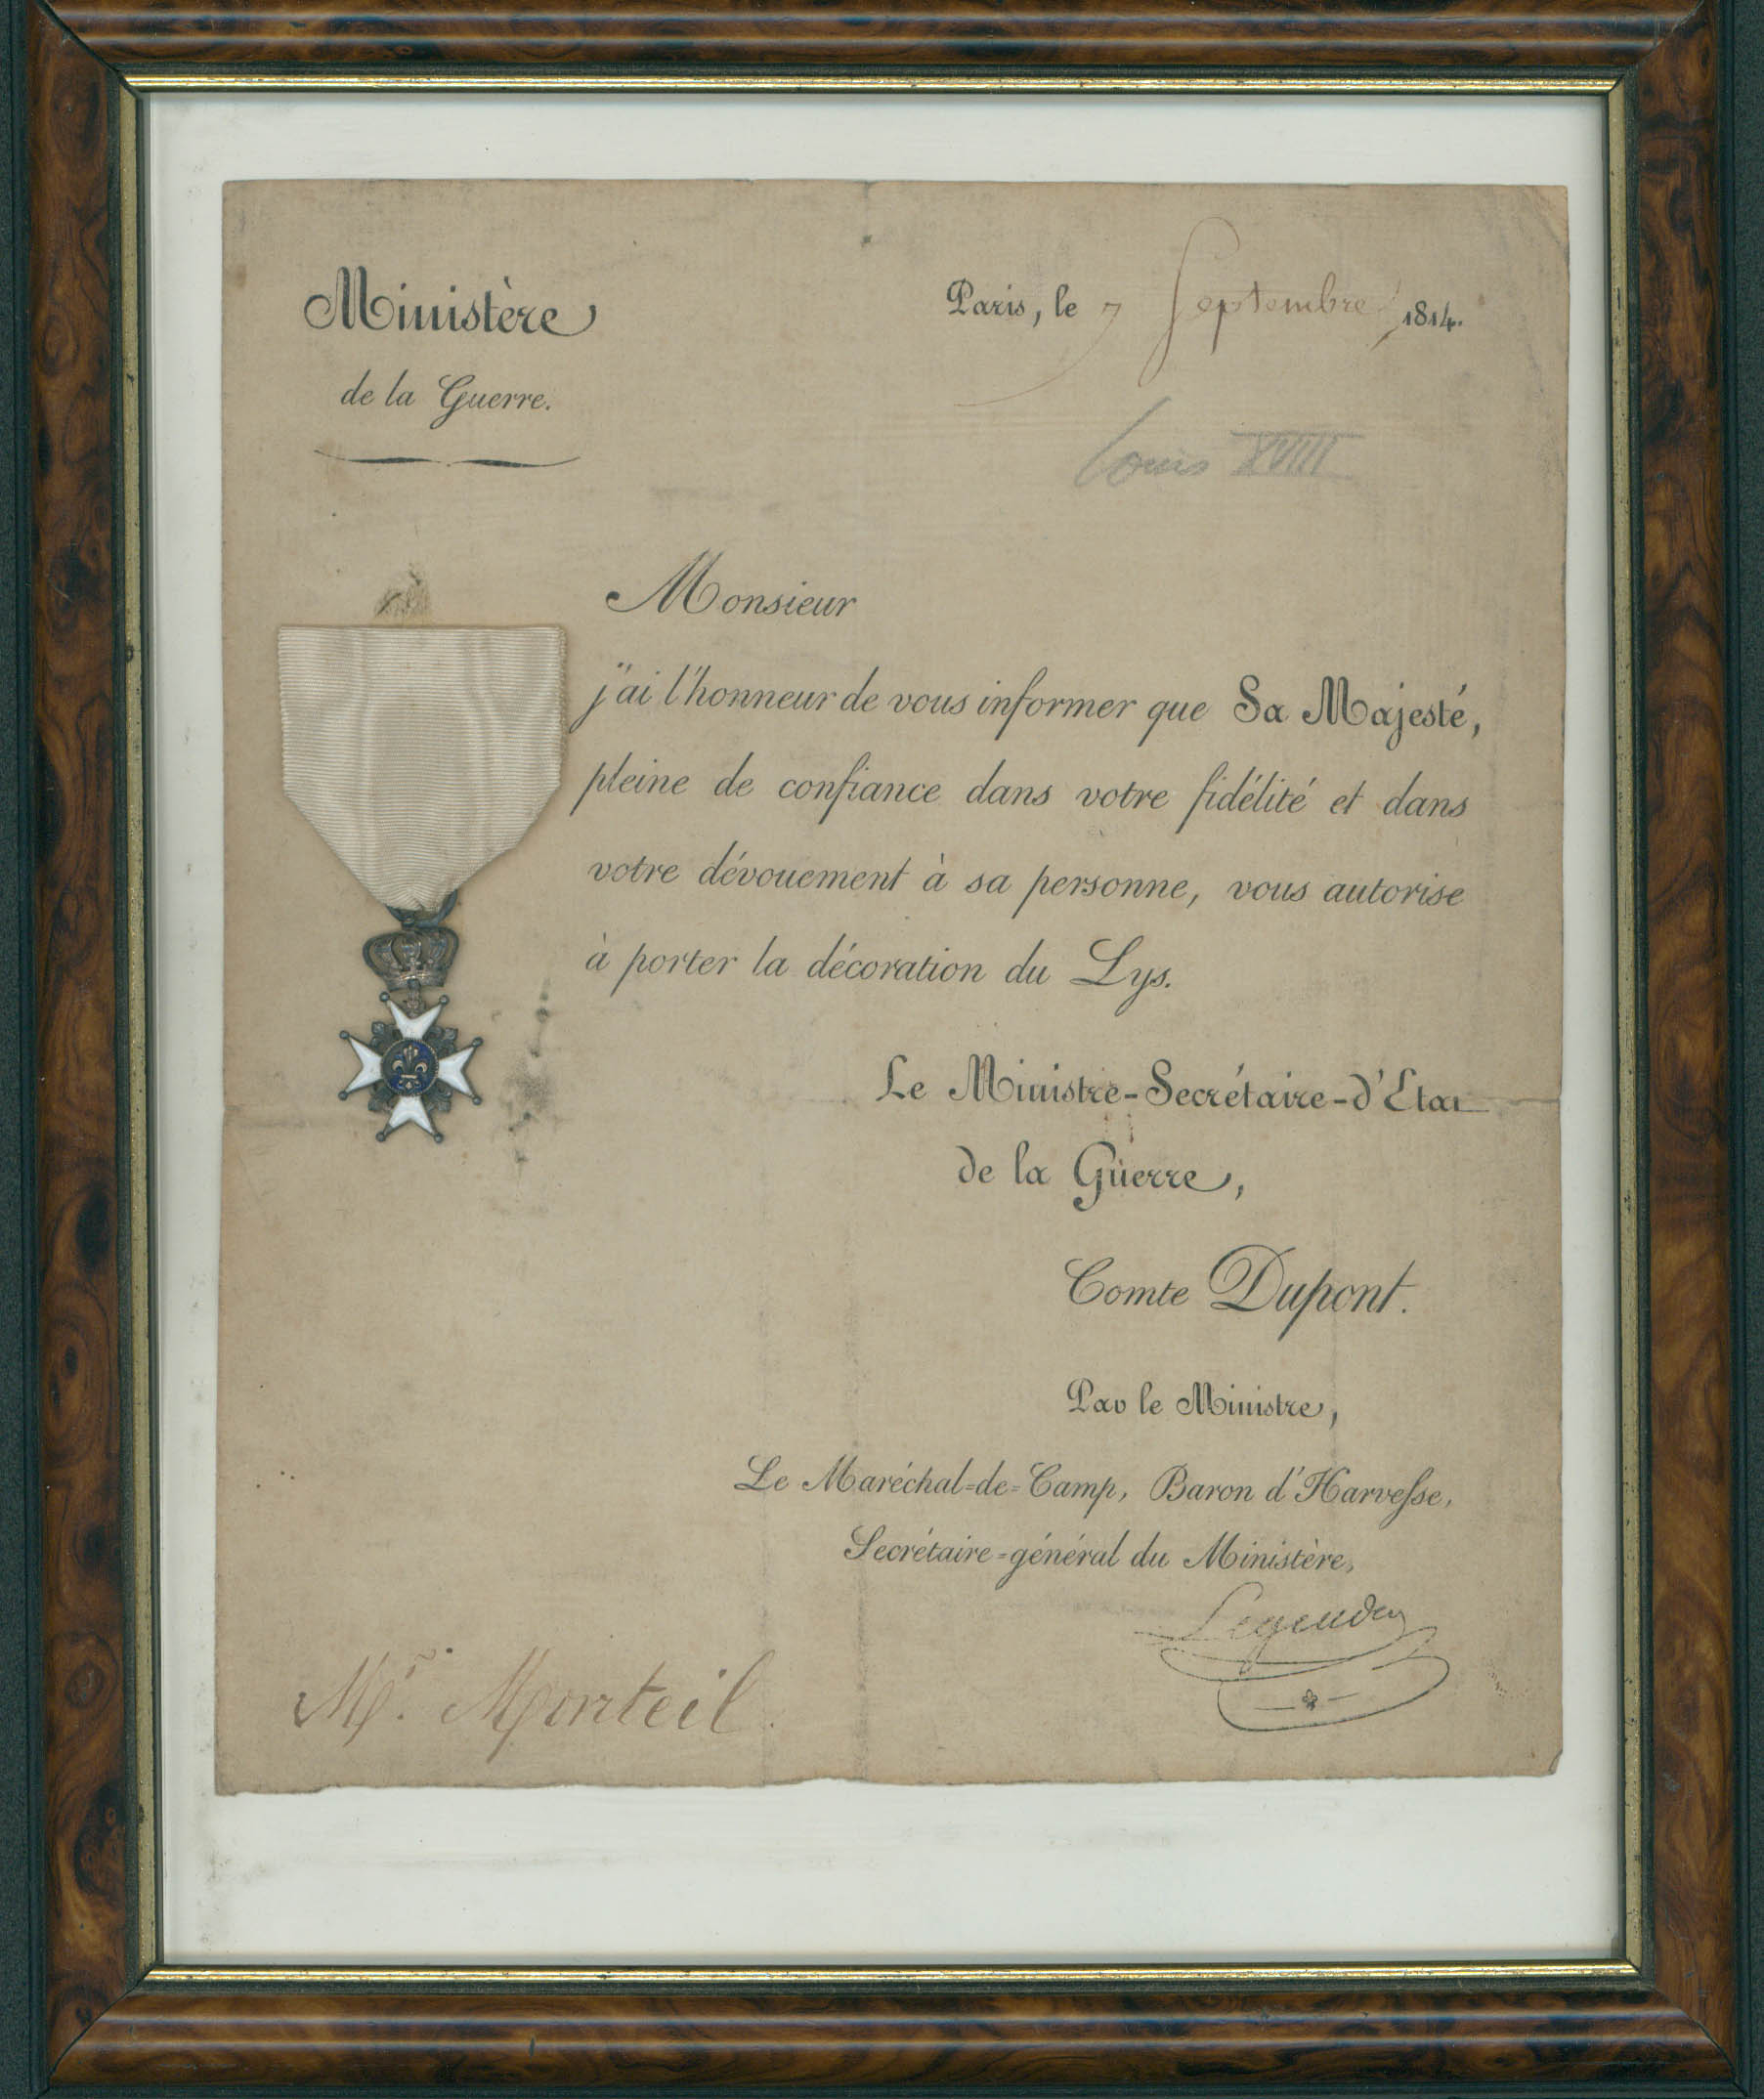 Ministère
de la Guerre.
Paris, le 7 Septembre 1814.
Louis XVIII
Monsieur
j'ai l'honneur de vous informer que Sa Majesté,
pleine de confiance dans votre fidélité et dans
votre dévouement à sa personne, vous autorise
à porter la décoration du Lys.
Le Ministre-Secrétaire-d'Etat
de la Guerre,
Comte Dupont.
Par le Ministre,
Le Maréchal-de-Camp, Baron d'Harvesse,
Secrétaire-général du Ministère,
Mr. Monteil.